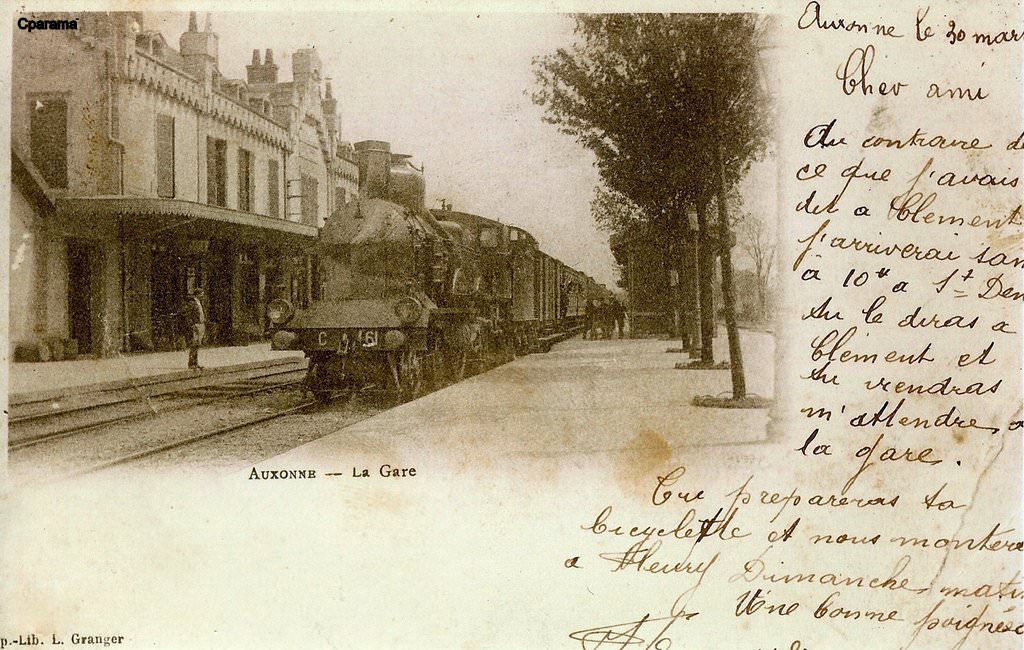 Cparama
Auxonne le 30 mar
Cher ami
Au contraire d
ce que j'avais
dit a Clement
j'arriverai sam
à 10h a St Den
tu le diras a
Clément et
tu viendras
m'attendre a
la gare.
Tu prepareras ta
bicyclette et nous montero
a Fleury Dimanche mati
Une bonne poigné
C 61
AUXONNE — La Gare
p.-Lib. L. Granger